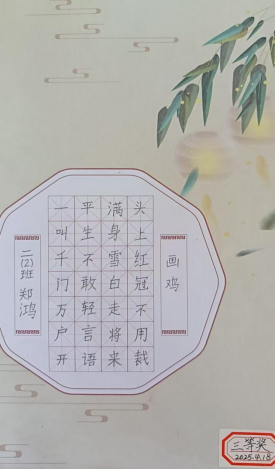 画鸡
头上红冠不用裁
满身雪白走将来
平生不敢轻言语
一叫千门万户开
二(2)班 郑鸿
三等奖
2025.4.18